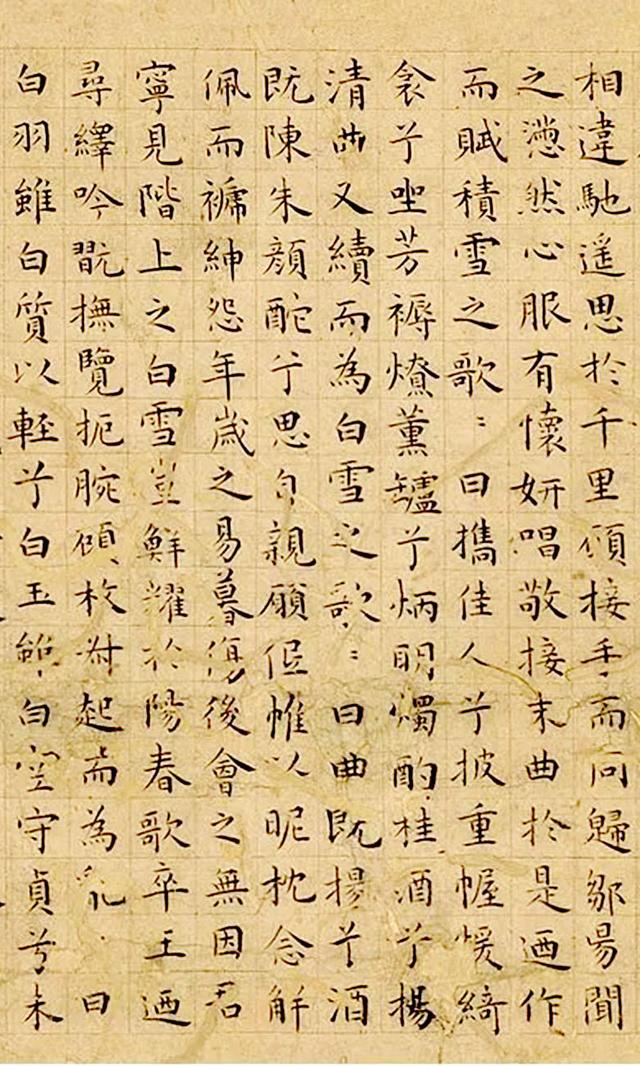 相違馳遥思於千里頋接手而同歸鄒昜聞
之懣然心服有懷妍唱敬接末曲於是迺作
而賦積雪之歌〻曰攜佳人兮披重幄煖綺
衾兮坐芳褥燎薰鑪兮炳明燭酌桂酒兮揚
清曲又續而為白雪之歌〻曰曲既揚兮酒
既陳朱顔酡兮思自親願低帷以昵枕念解
佩而褫紳怨年歲之易暮傷後會之無因君
寧見階上之白雪豈鮮耀於陽春歌卒王迺
尋繹吟翫撫覽扼腕頋枚叔起而為亂曰
白羽雖白質以輕兮白玉雖白空守貞兮未